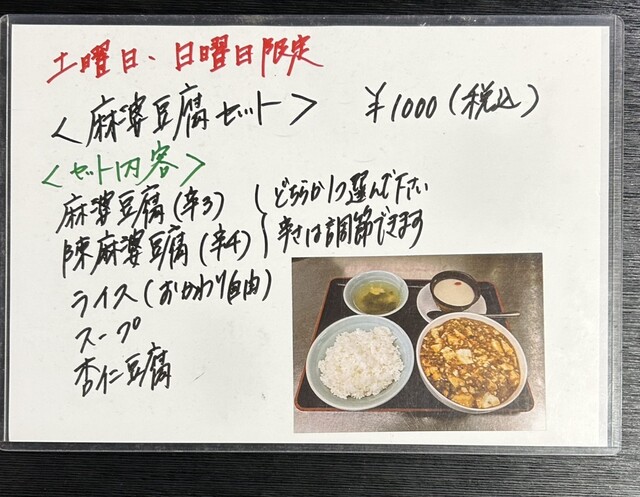 土曜日、日曜日限定
<麻婆豆腐セット> ￥1000(税込)
<セット内容>
麻婆豆腐(辛3)
陳麻婆豆腐(辛4)
どちらか1つ選んで下さい
辛さは調節できます
ライス(おかわり自由)
スープ
杏仁豆腐